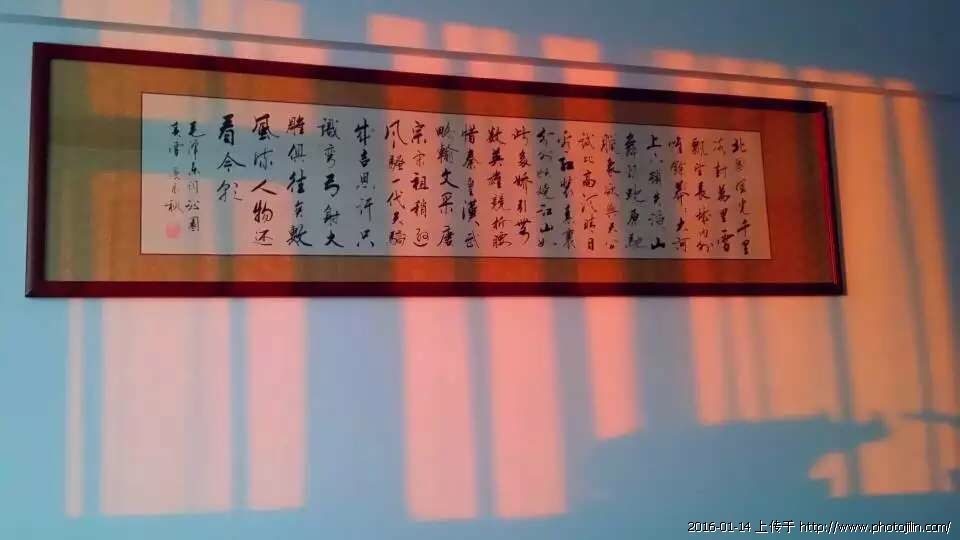 北国風光千里
冰封萬里雪
飄望長城内外
惟餘莽莽大河
上下顿失滔滔山
舞銀蛇原馳
蠟象欲與天公
試比高须晴日
看紅裝素裹
分外妖娆江山如
此多嬌引無
數英雄競折腰
惜秦皇漢武
略輸文采唐
宗宋祖稍逊
風騷一代天驕
成吉思汗只
識彎弓射大
雕俱往矣數
風流人物还
看今朝
毛澤东詞沁園
春雪
2016-01-14 上传于 http://www.photojilin.com/